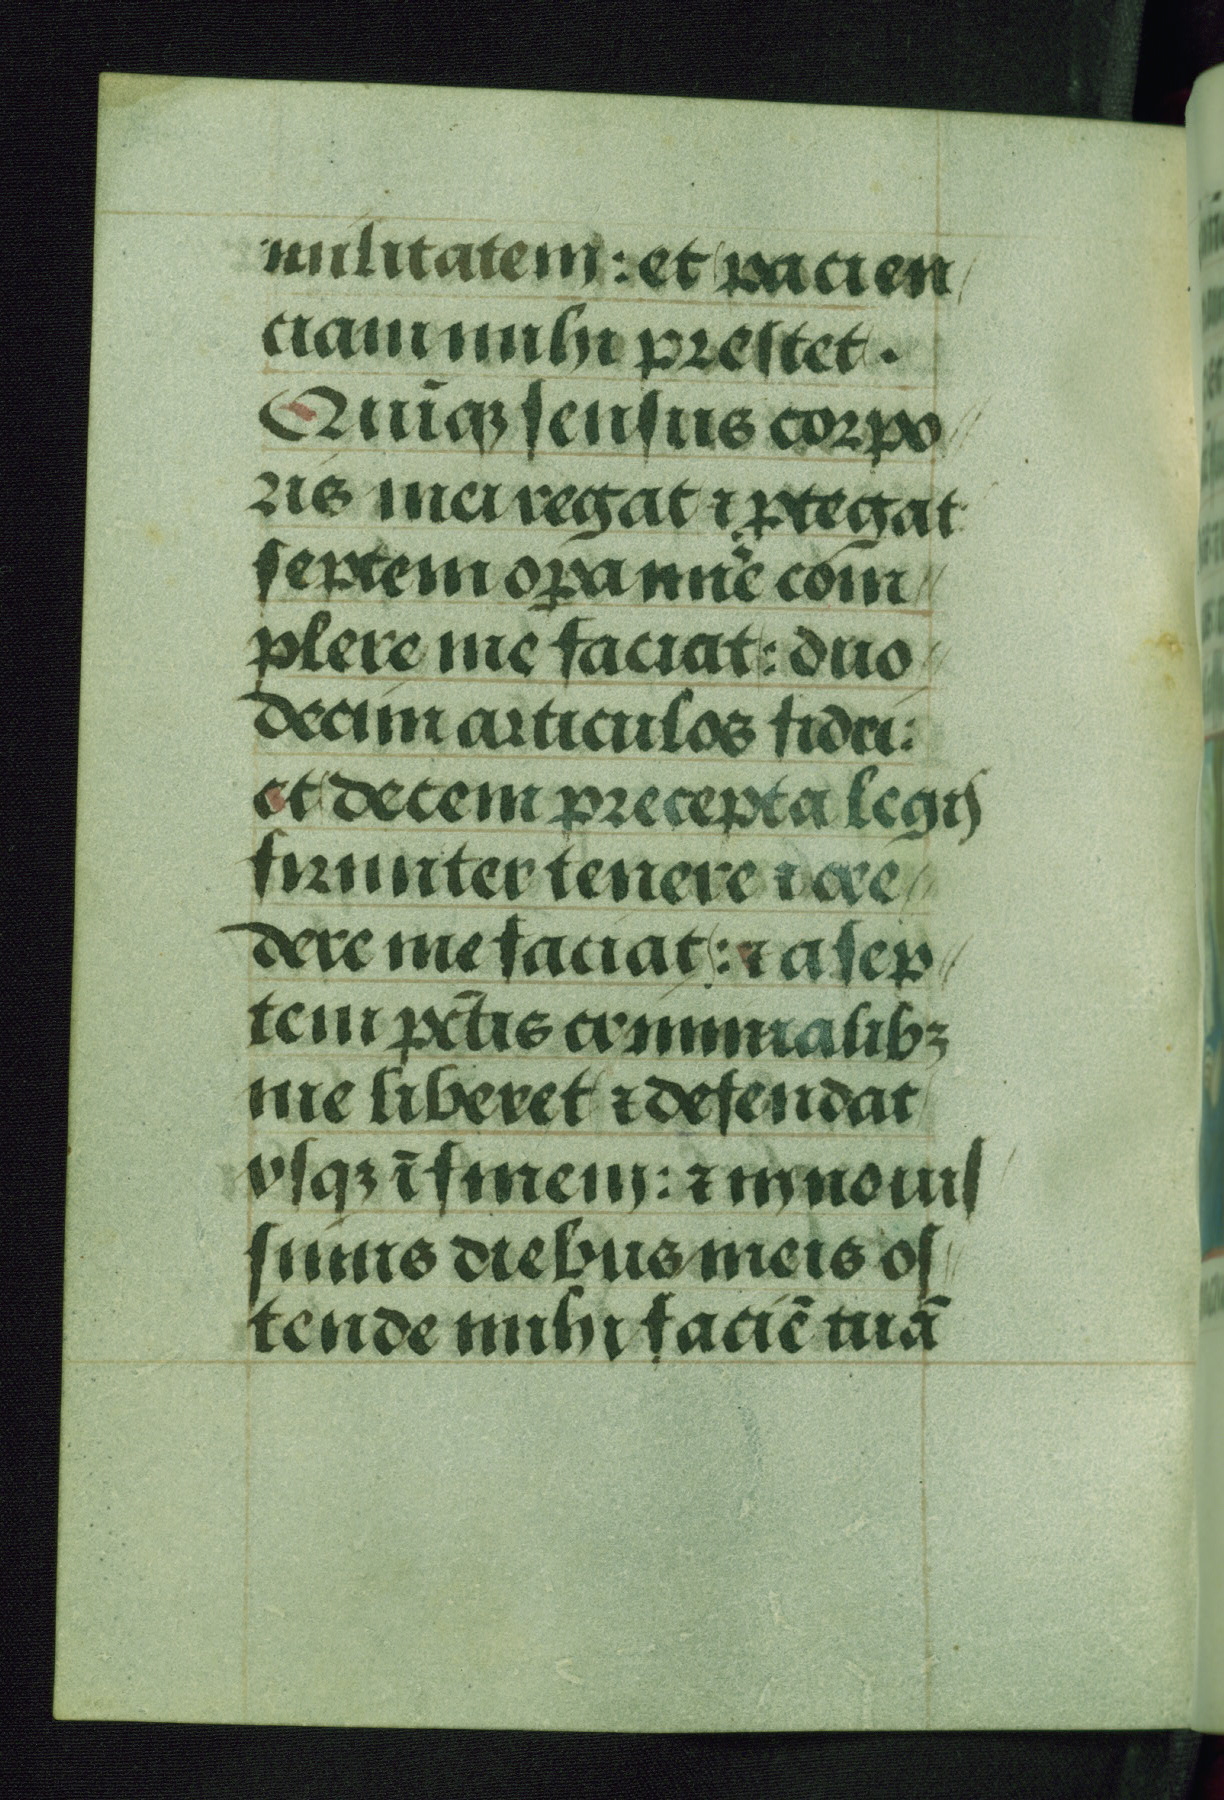 militatem : et pacien
ciam mihi prestet .
Quīqꝫ sensus corpo
ris mei regat ⁊ ꝓtegat
septem oꝑa mīe com̄
plere me faciat : duo
decim articulos fidei :
et decem precepta legis
firmiter tenere ⁊ cre
dere me faciat : ⁊ a sep
tem pct̄is criminalibꝫ
me liberet ⁊ defendat
vsqꝫ ī finem : ⁊ in nouis
simis diebus meis os
tende mihi faciē tuā